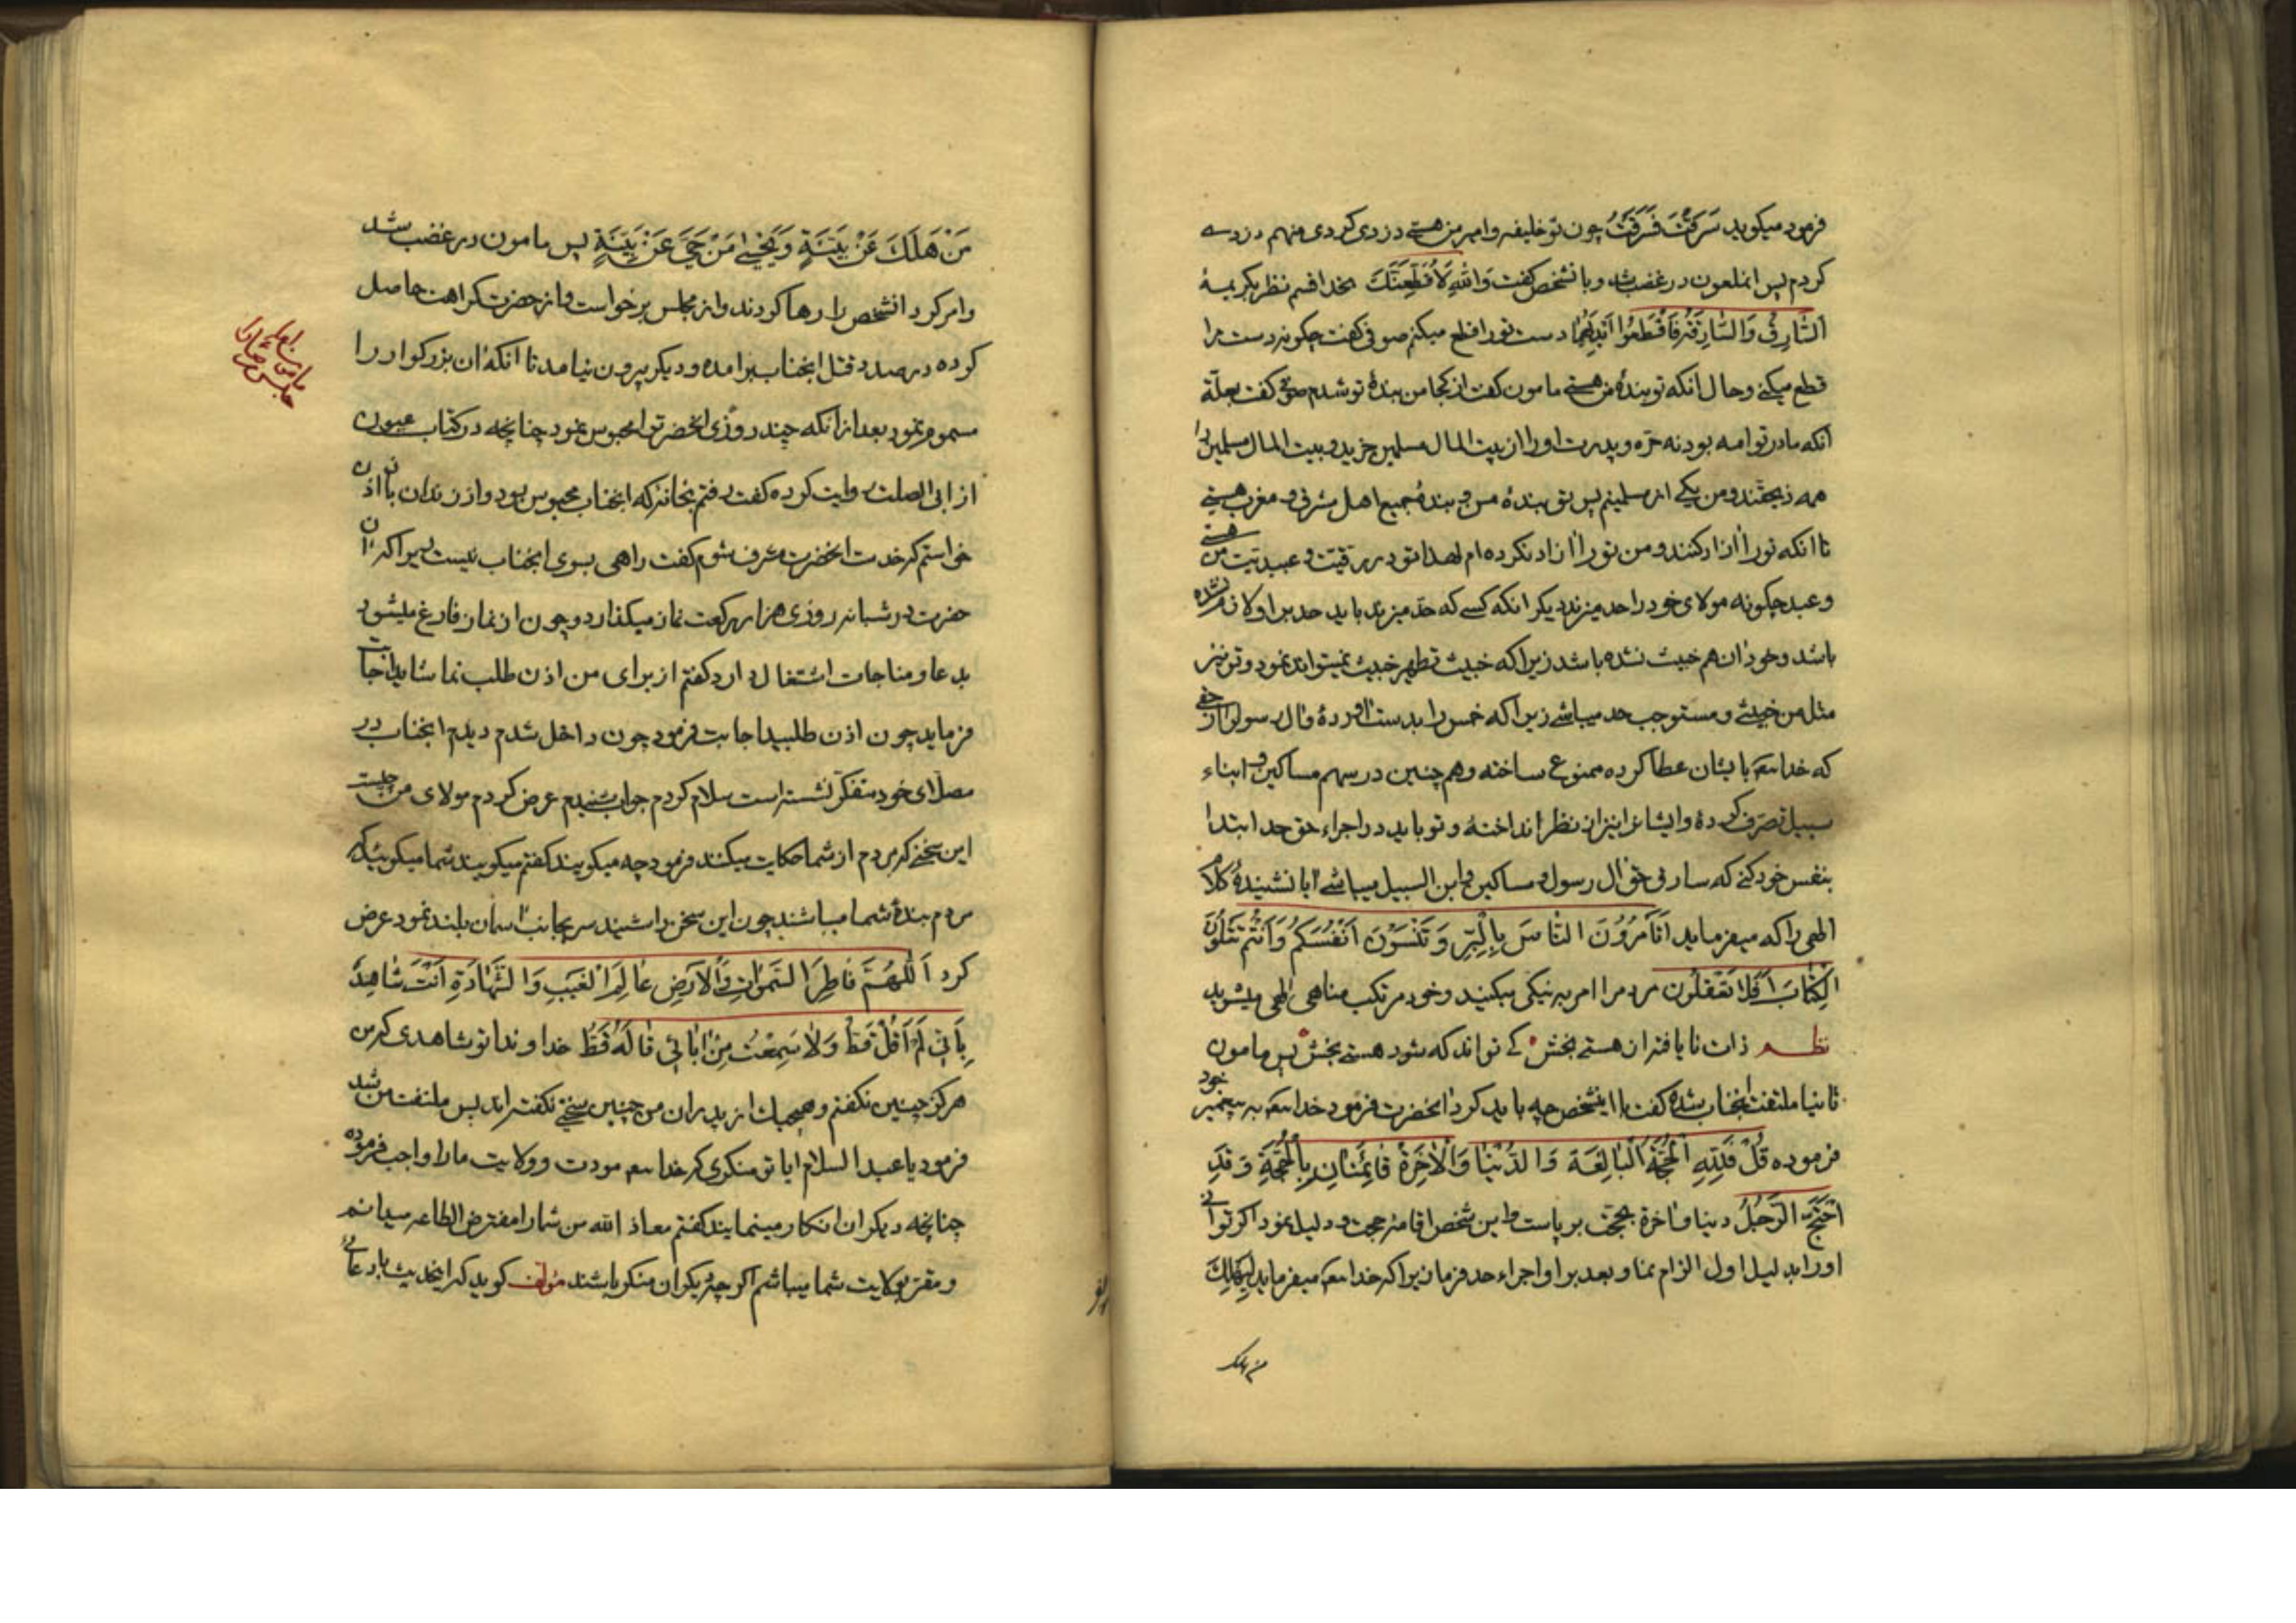 فرمود میکوید سَرَقْتَ فَسَرَقْتُ چون تو خلیفه و امیر من هستے دزدی کردی منهم دزدے
کردم پس انملعون در غضب شد و بانشخص کفت وَاللهِ لَأَقْطَعَنَّكَ بخدا قسم نظر بکریمهٔ
اَلسَّارِقُ وَالسَّارِقَةُ فَاقْطَعُوا اَیْدِیَهُمَا دست تو را قطع میکنم صوفی کفت چکونه دست مرا
قطع میکنے و حال انکه تو بندهٔ من هستے مامون کفت از کجا من بندهٔ تو شدم صوفی کفت بعلّة
انکه مادر تو امه بود نه حرّه و پدرت او را از بیت المال مسلمین خرید و بیت المال مسلمین را
همه ذیحقند و من یکے از مسلمینم پس تو بندهٔ من و بندهٔ جمیع اهل مشرق و مغرب هستے
تا انکه تو را ازاد کنند و من تو را ازاد نکرده ام لهذا تو در رقیّت و عبدیّت من هستے
و عبد چکونه مولای خود را حد میزند دیکر انکه کسے که حدّ میزند باید حد بر او لازم نشده
باشد و خود ان هم خبیث نشده باشد زیرا که خبیث تطهیر خبیث نمیتواند نمود و تو نیز
مثل من خبیثے و مستوجب حد میباشے زیرا که خمس را بدست اوردهٔ و ال رسول را از حقے
که خدا تعه بایشان عطا کرده ممنوع ساخته و هم چنین در سهم مساکین و ابناء
سبیل تصرّف کردهٔ و ایشانرا نیز از نظر انداختهٔ و تو باید در اجراء حق خدا ابتدا
بنفس خود کنے که سارق حق ال رسول و مساکین و ابن السبیل میباشے ایا نشنیدهٔ کلام
الهی را که میفرماید اَتَأْمُرُونَ النَّاسَ بِالْبِرِّ وَ تَنْسَوْنَ اَنْفُسَکُمْ وَ اَنْتُمْ تَتْلُونَ
الْکِتَابَ اَفَلَا تَعْقِلُونَ مردم را امر به نیکی میکنید و خود مرتکب مناهی الهی میشوید
نظم ذات نایافته از هستے بخش کے تواند که شود هستے بخش پس مامون
ثانیا ملتفت انجناب شده کفت با اینشخص چه باید کرد انحضرت فرمود خدا تعه به پیغمبر خود
فرموده قُلْ فَلِلّٰهِ الْحُجَّةُ الْبَالِغَةُ وَ الدُّنْیَا وَالْاٰخِرَةُ قَائِمَتَانِ بِالْحُجَّةِ وَ قَدِ
احْتَجَّ الرَّجُلُ دینا و اخرة بحجّت بر پاست و این شخص اقامه حجت و دلیل نمود اکر توانی
او را بدلیل اول الزام نما و بعد بر او اجراء حد فرما زیرا که خدا تعه میفرماید لِیَهْلِكَ
من هلك
مَنْ هَلَكَ عَنْ بَیِّنَةٍ وَ یَحْیٰی مَنْ حَیَّ عَنْ بَیِّنَةٍ پس مامون در غضب شد
و امر کرد انشخص را رها کردند و از مجلس برخواست و از حضرت کراهت حاصل
کرده در صدد قتل انجناب برامده و دیکر بیرون نیامد تا انکه ان بزرکوار را
مسموم نمود بعد از انکه چند روزی انحضرت را محبوس نمود چنانچه در کتاب عیون
از ابی الصلت روایت کرده کفت رفتم بخانه که انجناب محبوس بود و از زندان بان اذن
خواستم که خدمت انحضرت مشرف شوم کفت راهی بسوی انجناب نیست زیرا که ان
حضرت در شبانه روزی هزار رکعت نماز میکذارد و چون از نماز فارغ میشود
بدعا و مناجات اشتغال دارد کفتم از برای من اذن طلب نما شاید اجابت
فرماید چون اذن طلبید اجابت فرمود چون داخل شدم دیدم انجناب در
مصلّای خود متفکّر نشسته است سلام کردم جواب شنیدم عرض کردم مولای من چیست
این سخنے که مردم از شما حکایت میکنند فرمود چه میکویند کفتم میکویند شما میکویید که
مردم بندهٔ شما میباشند چون این سخن را شنید سر بجانب اسمان بلند نمود عرض
کرد اَللّٰهُمَّ فَاطِرَ السَّمٰوَاتِ وَالْاَرْضِ عَالِمَ الْغَیْبِ وَ الشَّهَادَةِ اَنْتَ شَاهِدٌ
بِأَنِّی لَمْ اَقُلْ قَطُّ وَلَا سَمِعْتُ مِنْ اٰبَائِی قَالَهُ قَطُّ خداوندا تو شاهدی که من
هرکز چنین نکفتم و هیچیك از پدران من چنین سخنے نکفته اند پس ملتفت من شد
فرمود یا عبد السلام ایا تو منکری که خدا تعه مودت و ولایت ما را واجب فرموده
چنانچه دیکران انکار مینمایند کفتم معاذ الله من شما را مفترض الطاعه میدانم
و مقرّ بولایت شما میباشم اکر چه دیکران منکر باشند مؤلف کوید که اینحدیث با دعای